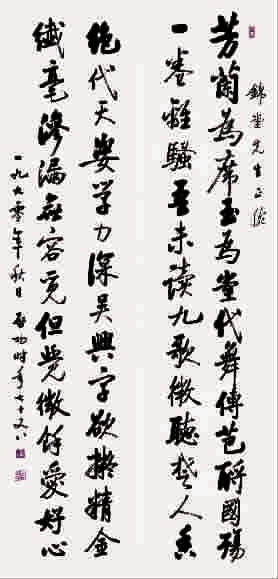 錦堂先生正
芳蘭為席玉為堂代舞傳芭酹國殤
一卷離騷吾未讀九歌微聽楚人香
絶代天姿学力深吴興字欲擬精金
纖毫滲漏無容覓但覺微餘愛好心
一九九零年秋日啟功時年七十又八